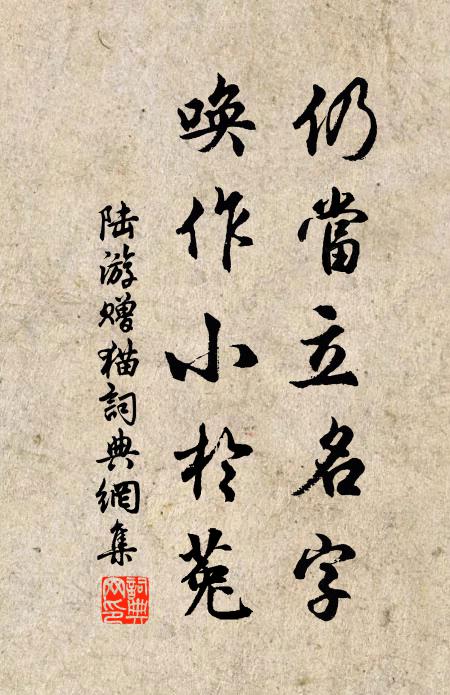 仍當立名字
喚作小於菟
陆游赠猫詞典網集
詞典網印